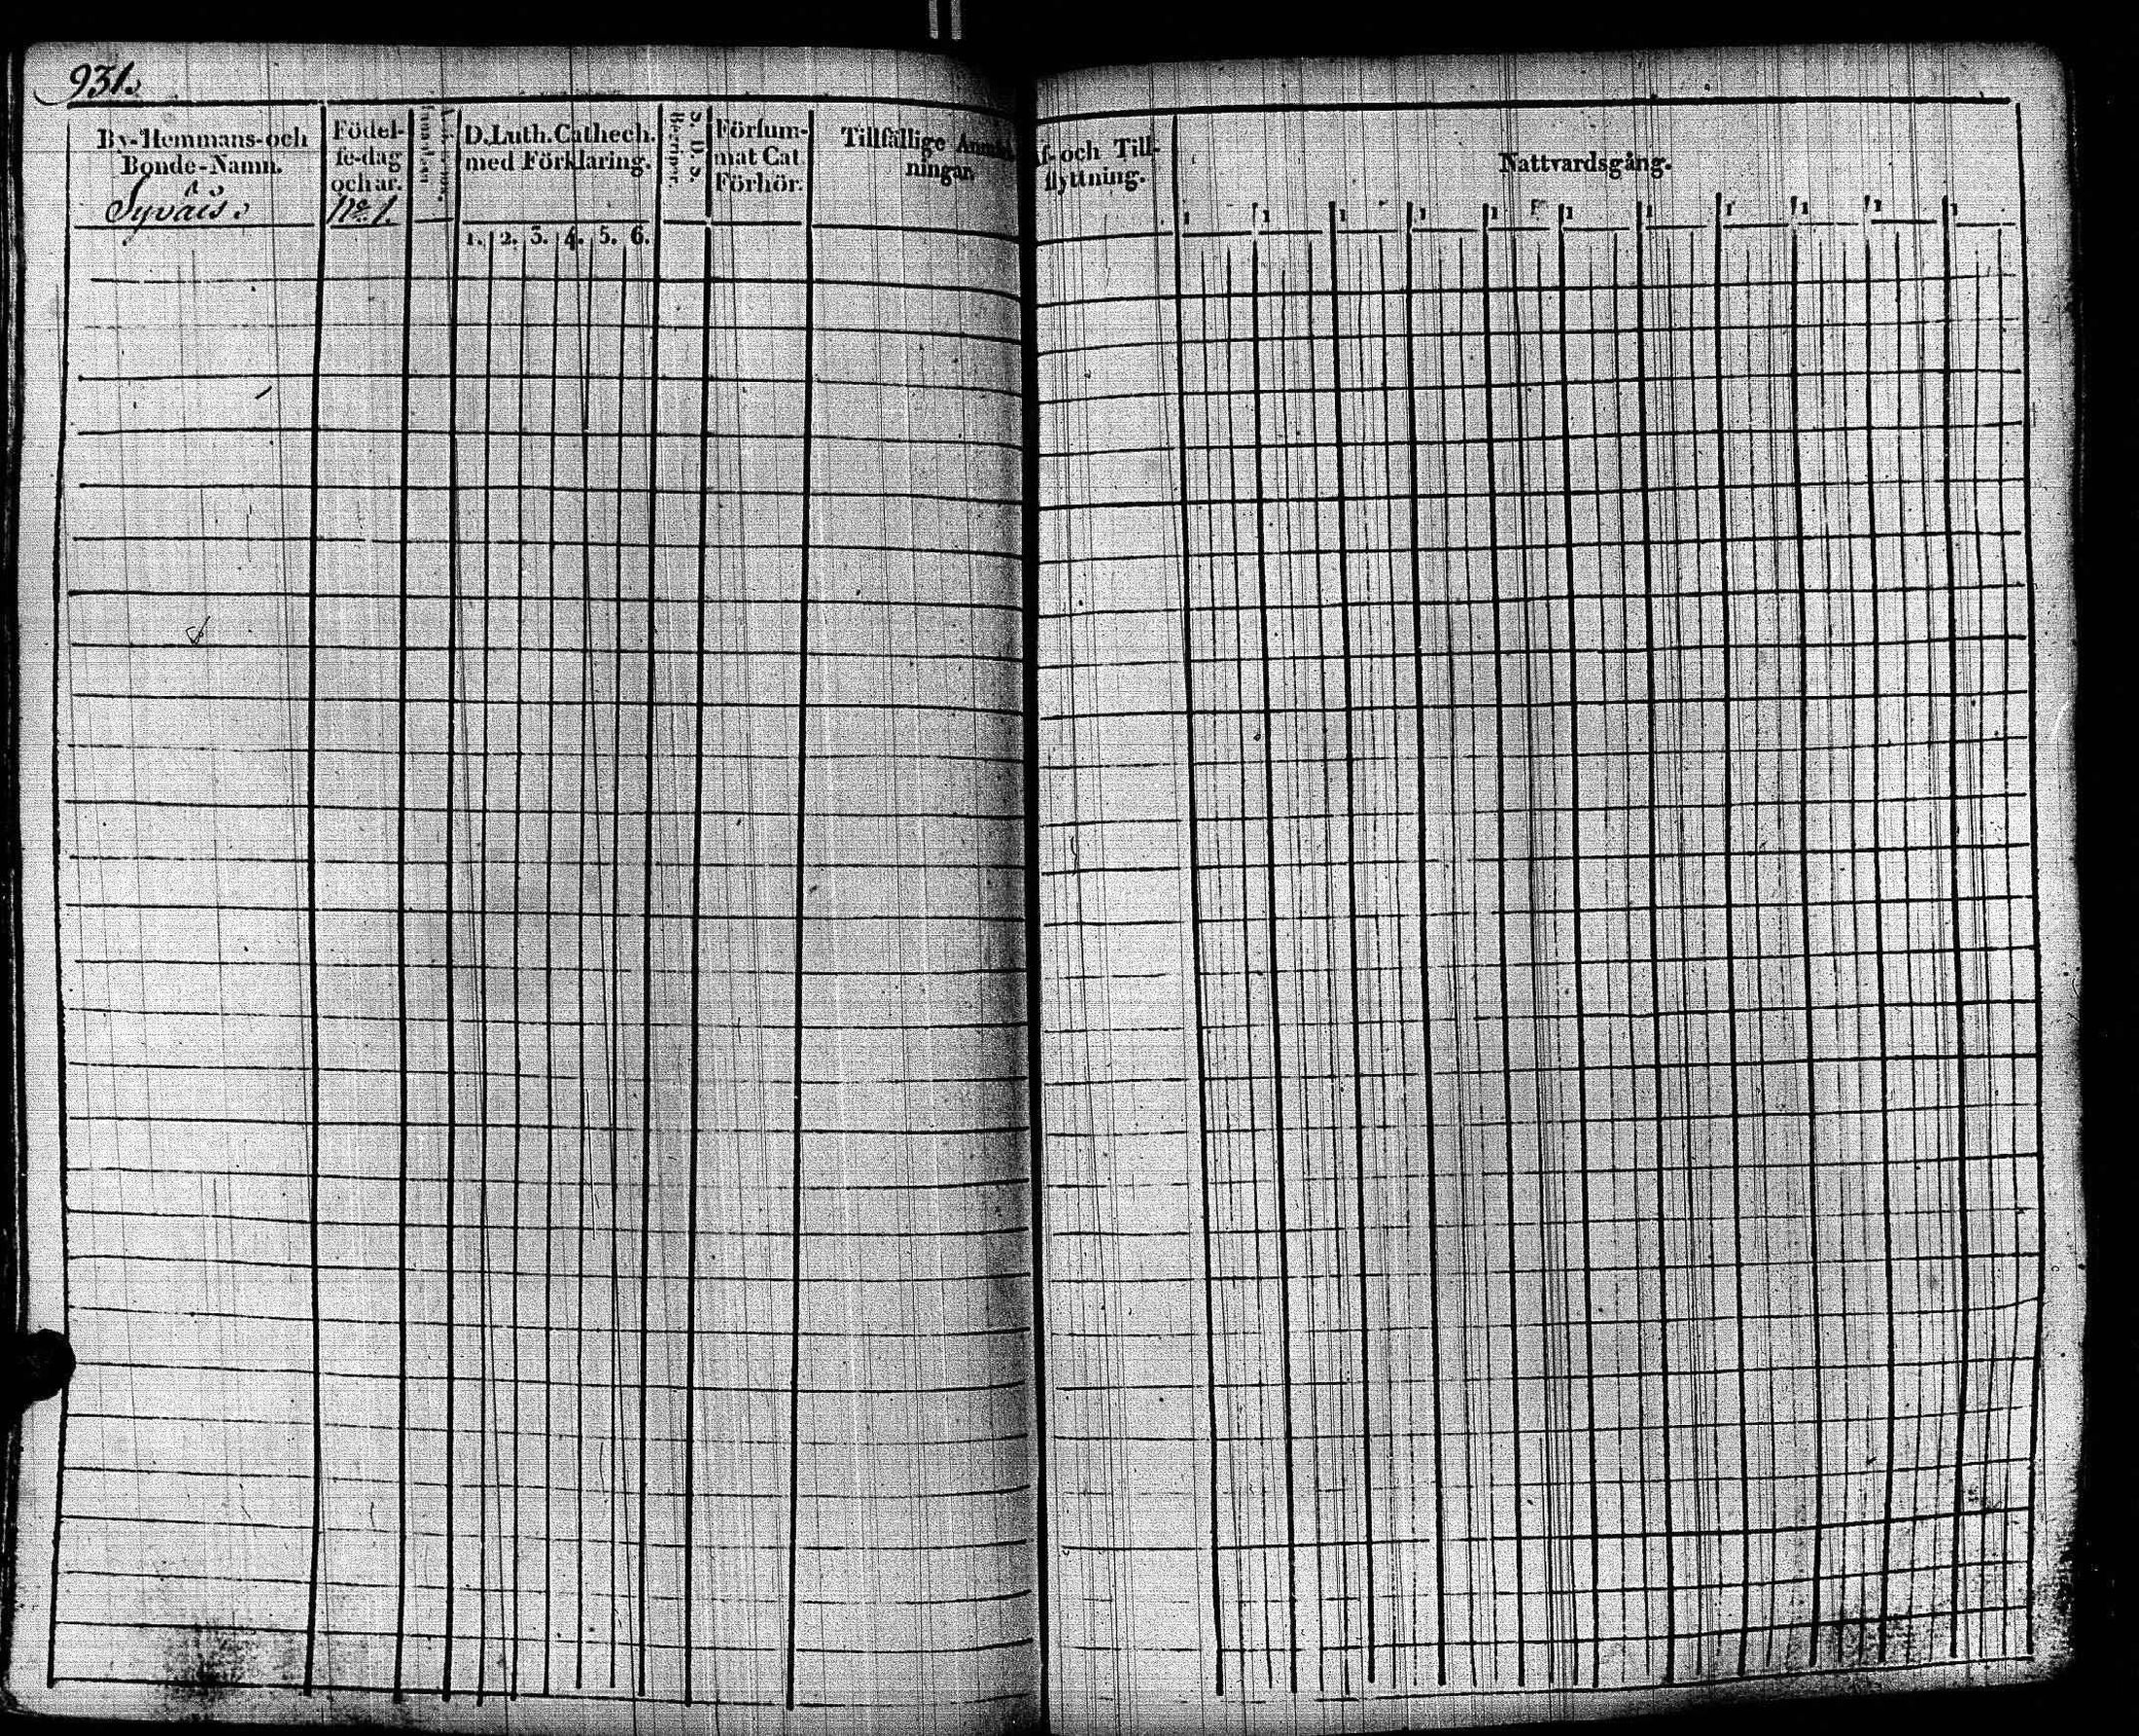 931.
By-Hemmans-och
Bonde-Namn.
Syväis.
Födel-
se-dag
och år.
No 1.
D. Luth. Cathech.
med Förklaring.
1. 2. 3. 4. 5. 6.
S. D. S.
Begriper.
Försum-
mat Cat.
Förhör.
Tillfällige Anmärk-
ningar.
f- och Till-
flyttning.
Nattvardsgång.
1 1 1 1 1 1 1 1 1 1 1